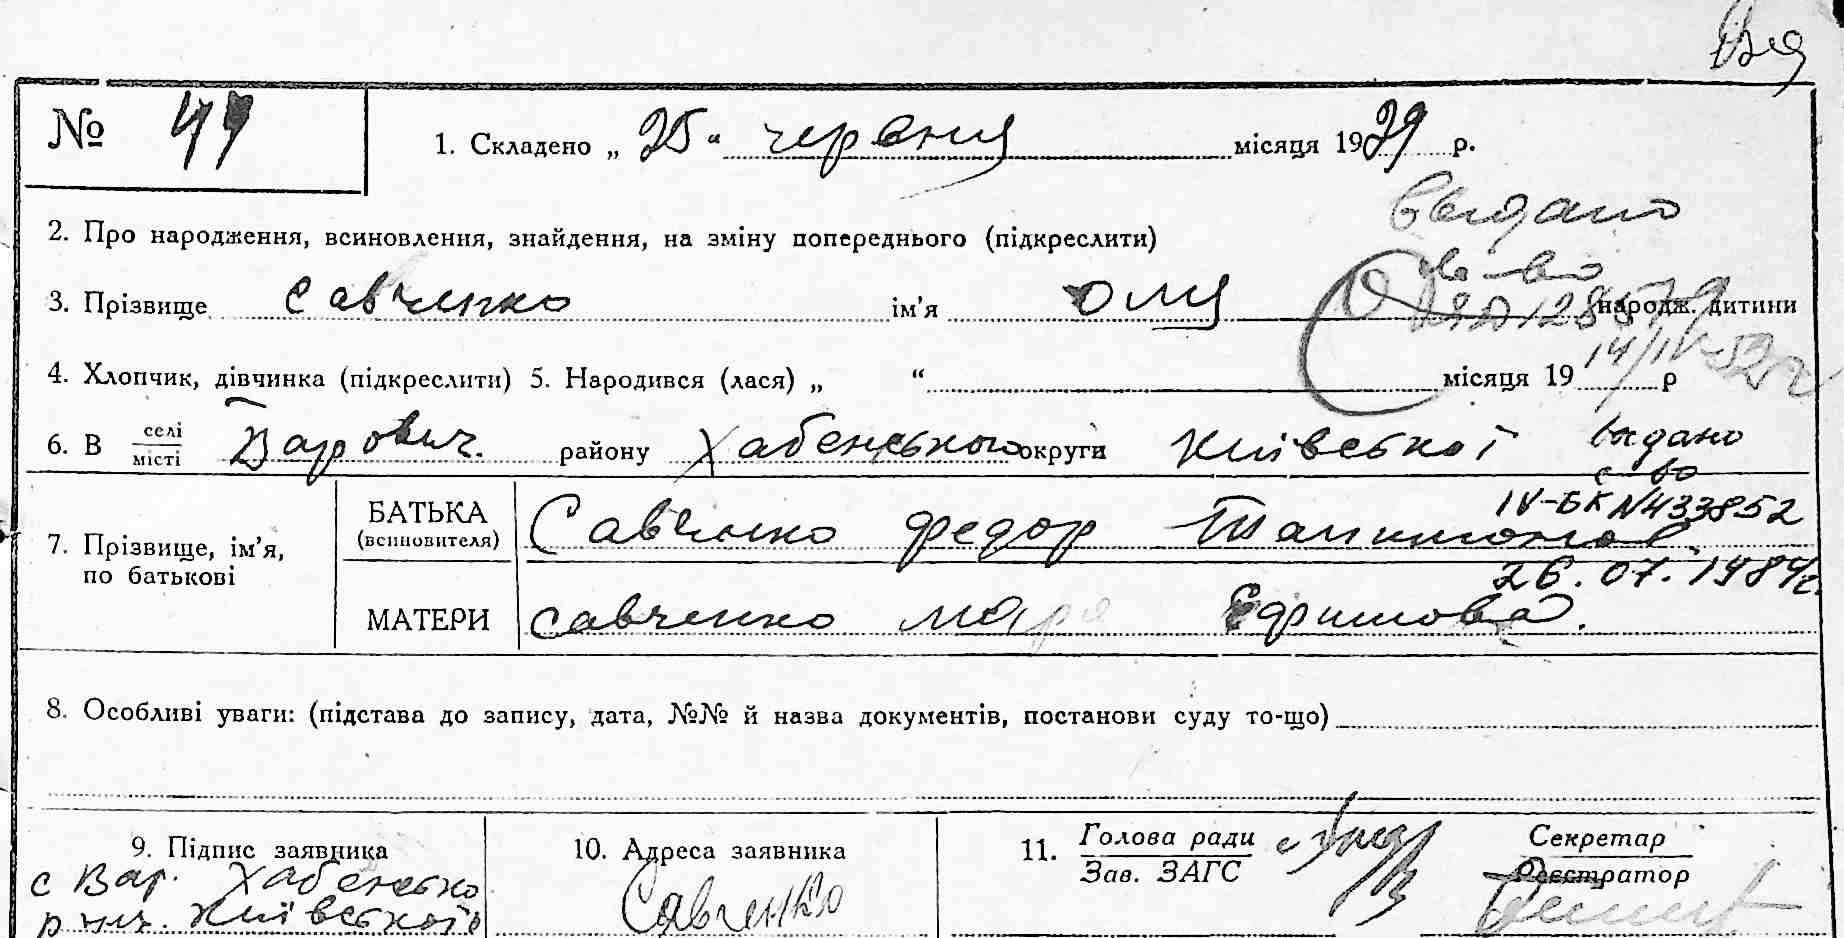 № 47 1. Складено „ 25 “ червня місяця 1929 р.
выдано
2. Про народження, всиновлення, знайдення, на зміну попереднього (підкреслити)
св-во
3. Прізвище Савченко ім’я Оля народж. дитини
14/IV-52г
4. Хлопчик, дівчинка (підкреслити) 5. Народився (лася) „ “ місяця 19 р
6. В селі місті Варович. району Хабенського округи Київської
выдано
с-во
IV-БК N433852
7. Прізвище, ім’я, по батькові
БАТЬКА (всиновителя) Савченко Федор
26.07.1984г.
МАТЕРИ Савченко Мара Ефимова.
8. Особливі уваги: (підстава до запису, дата, №№ й назва документів, постанови суду то-що)
9. Підпис заявника
с Вар. Хабенсько
р ни. Київської
10. Адреса заявника
Савченко
11. Голова ради
Зав. ЗАГС
Секретар
Реєстратор